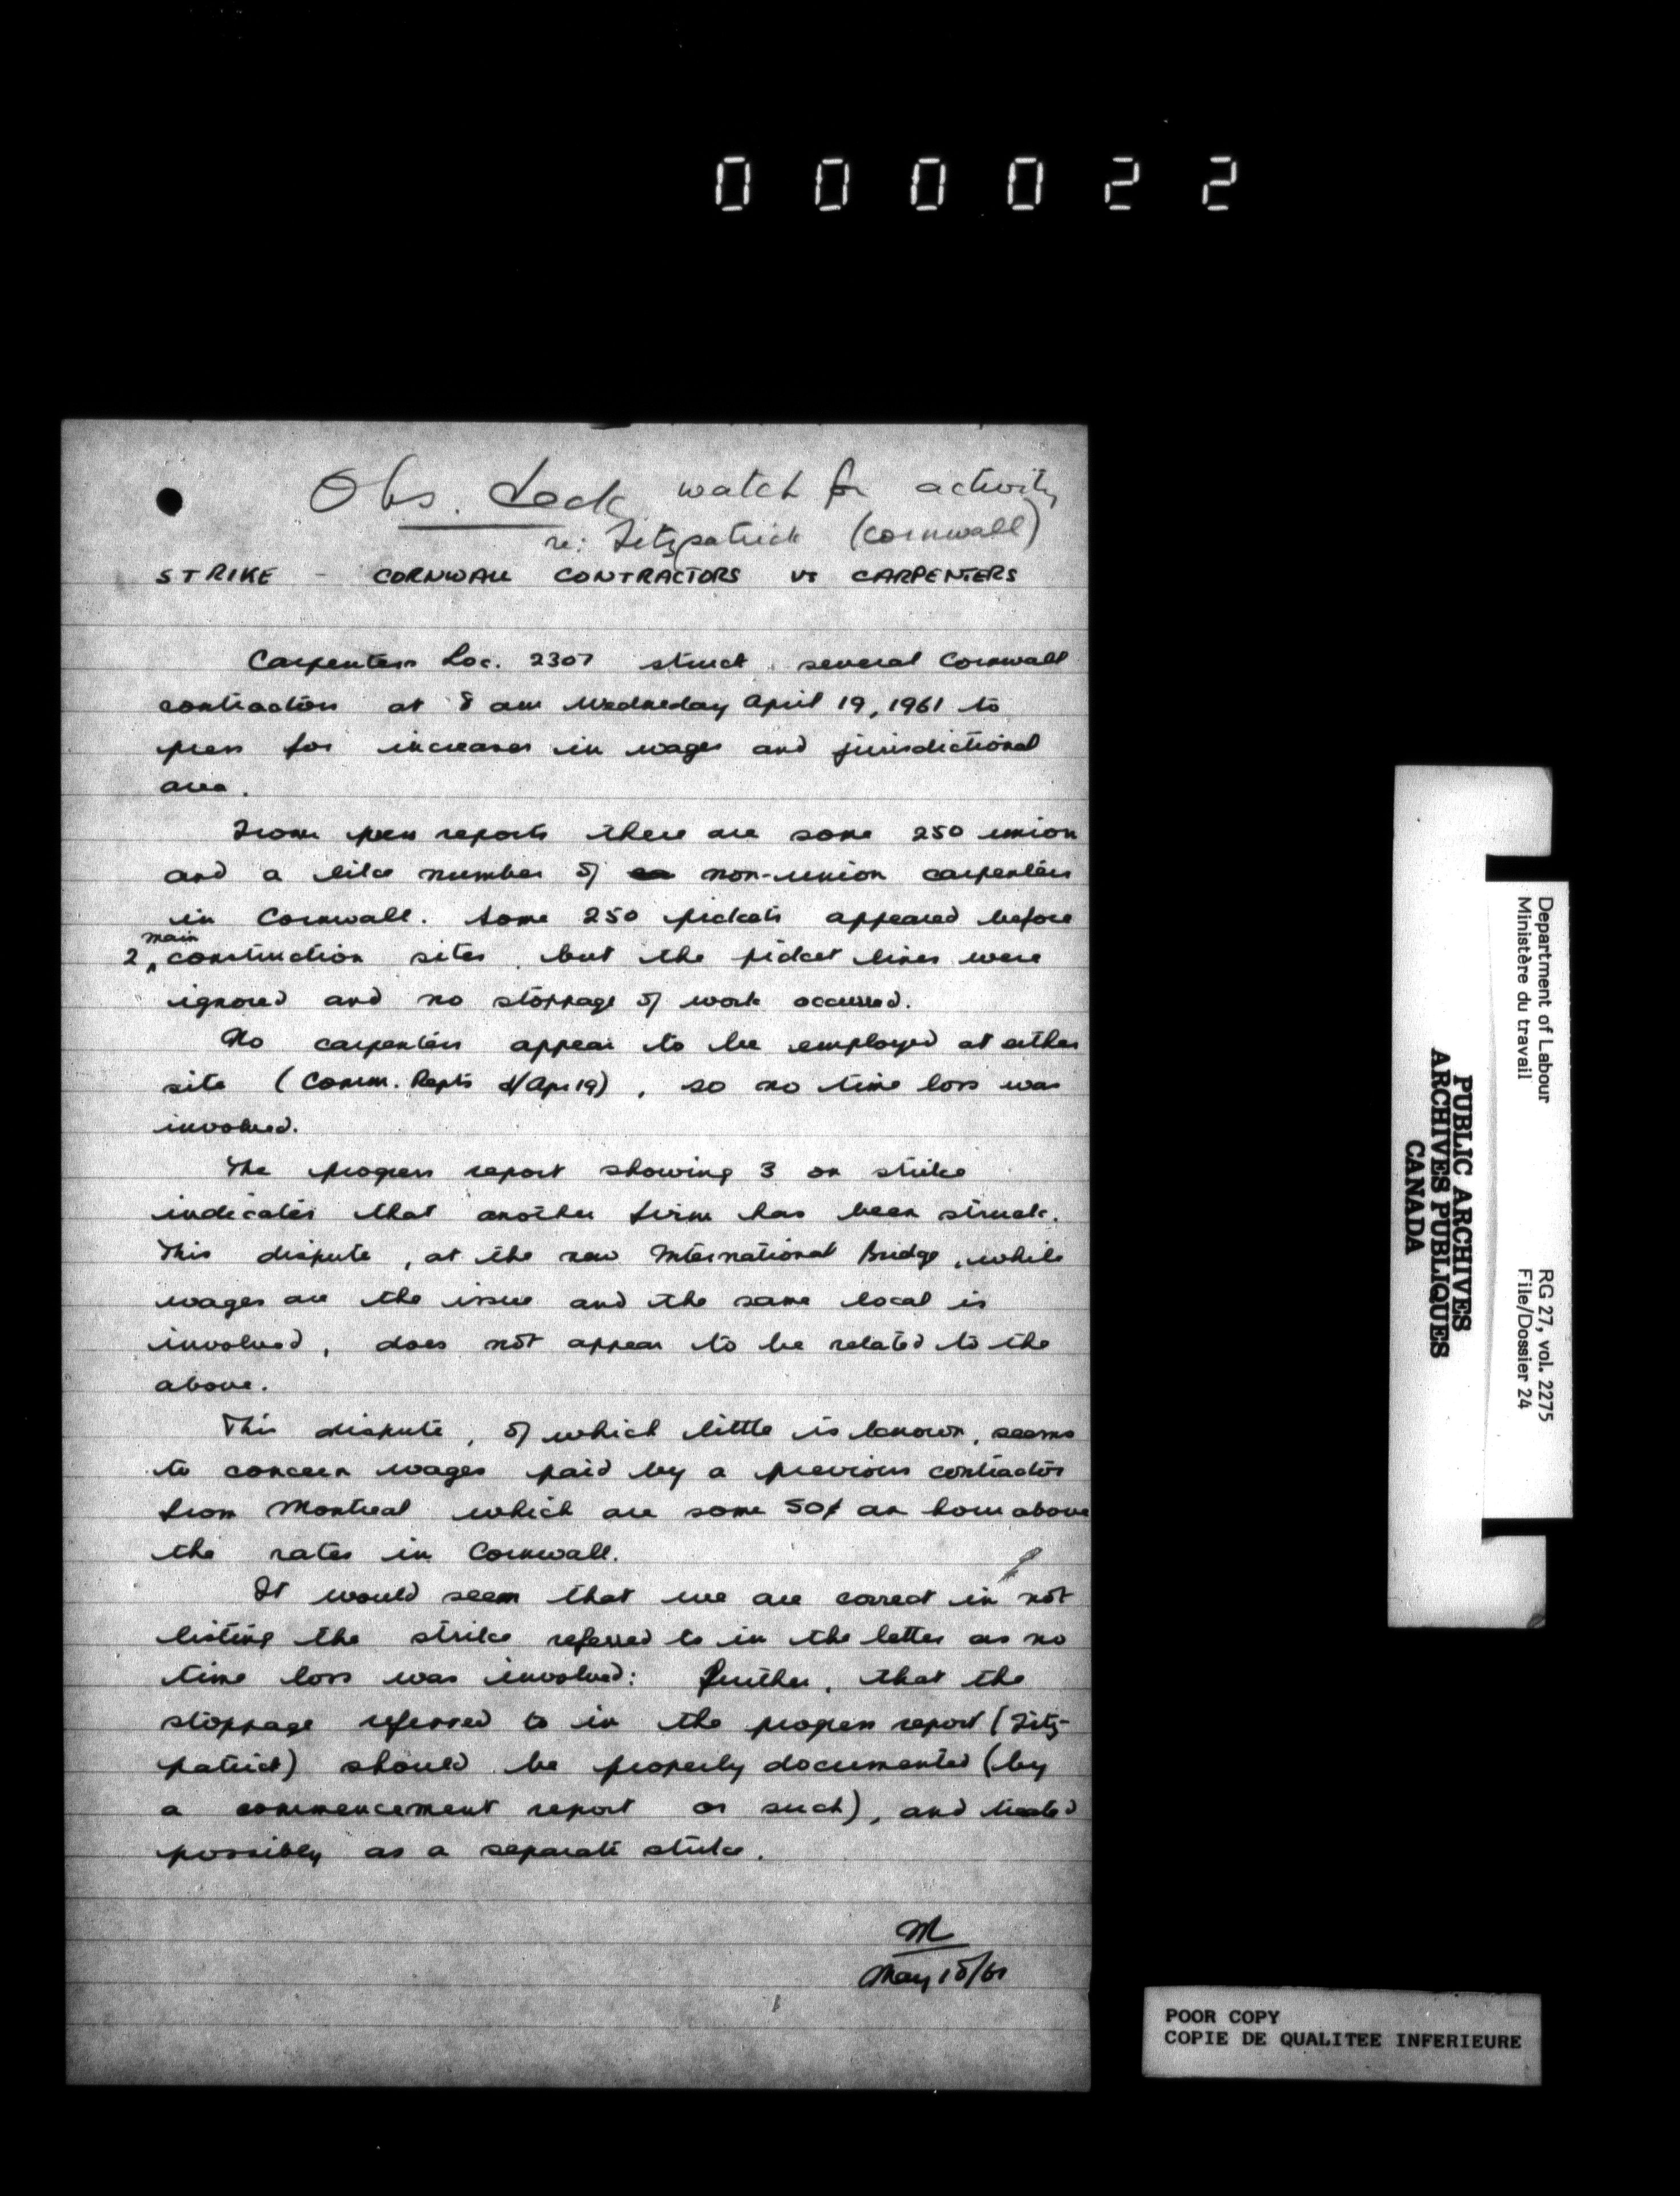 000022
Obs. Deck watch for activity
re: Fitzpatrick (Cornwall)
STRIKE - CORNWALL CONTRACTORS vs CARPENTERS
Carpenters Loc. 2307 struck several Cornwall
contractors at 8 am Wednesday April 19, 1961 to
press for increases in wages and jurisdictional
area.
From press reports there are some 250 union
and a like number of non-union carpenters
in Cornwall. Some 250 pickets appeared before
2 main construction sites, but the picket lines were
ignored and no stoppage of work occurred.
No carpenters appear to be employed at either
site (Comm. Repts d/Apr 19), so no time loss was
involved.
The progress report showing 3 on strike
indicates that another firm has been struck.
This dispute, at the new International Bridge, while
wages are the issue and the same local is
involved, does not appear to be related to the
above.
This dispute, of which little is known, seems
to concern wages paid by a previous contractor
from Montreal which are some 50¢ an hour above
the rates in Cornwall.
It would seem that we are correct in not
listing the strike referred to in the letter as no
time loss was involved: further, that the
stoppage referred to in the progress report (Fitz-
patrick) should be properly documented (by
a commencement report or such), and treated
possibly as a separate strike.
M
May 15/61
Department of Labour
Ministère du travail
RG 27, vol. 2275
File/Dossier 24
PUBLIC ARCHIVES
ARCHIVES PUBLIQUES
CANADA
POOR COPY
COPIE DE QUALITEE INFERIEURE